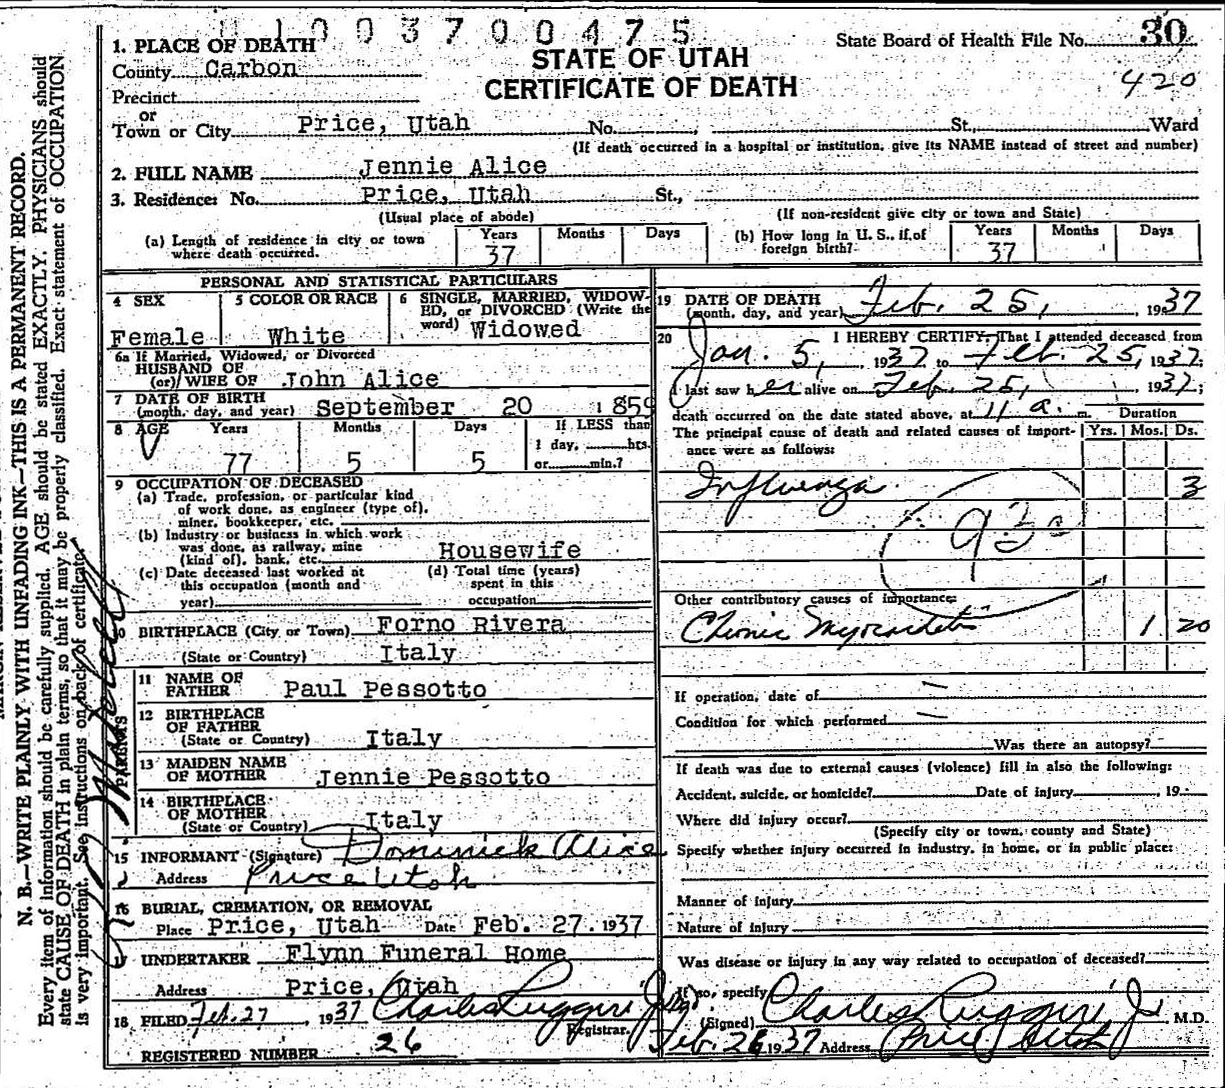 01003700475
State Board of Health File No. 30
420
STATE OF UTAH
CERTIFICATE OF DEATH
1. PLACE OF DEATH
County Carbon
Precinct
or
Town or City Price, Utah No. St., Ward
(If death occurred in a hospital or institution, give its NAME instead of street and number)
2. FULL NAME Jennie Alice
3. Residence: No. Price, Utah St.,
(Usual place of abode) (If non-resident give city or town and State)
(a) Length of residence in city or town where death occurred. Years 37 Months Days
(b) How long in U. S., if of foreign birth? Years 37 Months Days
PERSONAL AND STATISTICAL PARTICULARS
4 SEX Female
5 COLOR OR RACE White
6 SINGLE, MARRIED, WIDOWED, or DIVORCED (Write the word) Widowed
6a If Married, Widowed, or Divorced
HUSBAND OF
(or) WIFE OF John Alice
7 DATE OF BIRTH
(month, day, and year) September 20 1859
8 AGE Years 77 Months 5 Days 5 If LESS than 1 day, hrs. or min.?
9 OCCUPATION OF DECEASED
(a) Trade, profession, or particular kind
of work done, as engineer (type of),
miner, bookkeeper, etc.
(b) Industry or business in which work
was done, as railway, mine
(kind of), bank, etc. Housewife
(c) Date deceased last worked at
this occupation (month and
year)
(d) Total time (years)
spent in this
occupation
10 BIRTHPLACE (City or Town) Forno Rivera
(State or Country) Italy
PARENTS
11 NAME OF
FATHER Paul Pessotto
12 BIRTHPLACE
OF FATHER
(State or Country) Italy
13 MAIDEN NAME
OF MOTHER Jennie Pessotto
14 BIRTHPLACE
OF MOTHER
(State or Country) Italy
15 INFORMANT (Signature) Dominick Alice
Address Price Utah
16 BURIAL, CREMATION, OR REMOVAL
Place Price, Utah Date Feb. 27, 1937
17 UNDERTAKER Flynn Funeral Home
Address Price, Utah
18 FILED Feb. 27, 1937 Charles Ruggeri Jr
Registrar.
REGISTERED NUMBER 26
19 DATE OF DEATH
(month, day, and year) Feb. 25, 1937
20 I HEREBY CERTIFY, That I attended deceased from
Jan. 5, 1937 to Feb. 25, 1937;
I last saw her alive on Feb. 25, 1937;
death occurred on the date stated above, at 11 a. m. Duration
The principal cause of death and related causes of importance were as follows: Yrs. Mos. Ds.
Influenza 3
93c
Other contributory causes of importance:
Chronic Myocarditis 1 20
If operation, date of
Condition for which performed
Was there an autopsy?
If death was due to external causes (violence) fill in also the following:
Accident, suicide, or homicide? Date of injury , 19
Where did injury occur?
(Specify city or town, county and State)
Specify whether injury occurred in industry, in home, or in public place:
Manner of injury
Nature of injury
Was disease or injury in any way related to occupation of deceased?
If so, specify
(Signed) Charles Ruggeri Jr M.D.
Feb. 26 1937 Address Price Utah
N. B.—WRITE PLAINLY WITH UNFADING INK—THIS IS A PERMANENT RECORD.
Every item of information should be carefully supplied. AGE should be stated EXACTLY. PHYSICIANS should
state CAUSE OF DEATH in plain terms, so that it may be properly classified. Exact statement of OCCUPATION
is very important. See instructions on back of certificate.